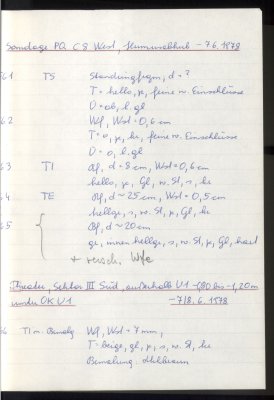 Sondage PQ C8 West, Humusabhub – 7.6.1978
61 TS Standringfrgm, d = ?
T = hello, gl, feine w. Einschlüsse
Ü = ob, l. gl
62 Wf, Wst = 0,6 cm
T = o, gl, hr, feine w. Einschlüsse
Ü = o, l. gl
63 TI Rf, d = 8 cm, Wst = 0,6 cm
hello, gl, Gl, w. St, s, hr
64 TE Rf, d ~ 25 cm, Wst = 0,5 cm
hellge, s, w. St, gl, Gl, hr
65 Bf, d ~ 20 cm
ge, innen hellge, s, w. St, gl, Gl, hart
+ versch. Wfe
Theater, Sektor III Süd, außerhalb U1 –0,80 bis –1,20m
unter OK U1 – 7/8. 6. 1978
66 TI m. Bemalg Wf, Wst = 7 mm,
T = beige, gl, s, w. St, hr
Bemalung: dkl braun